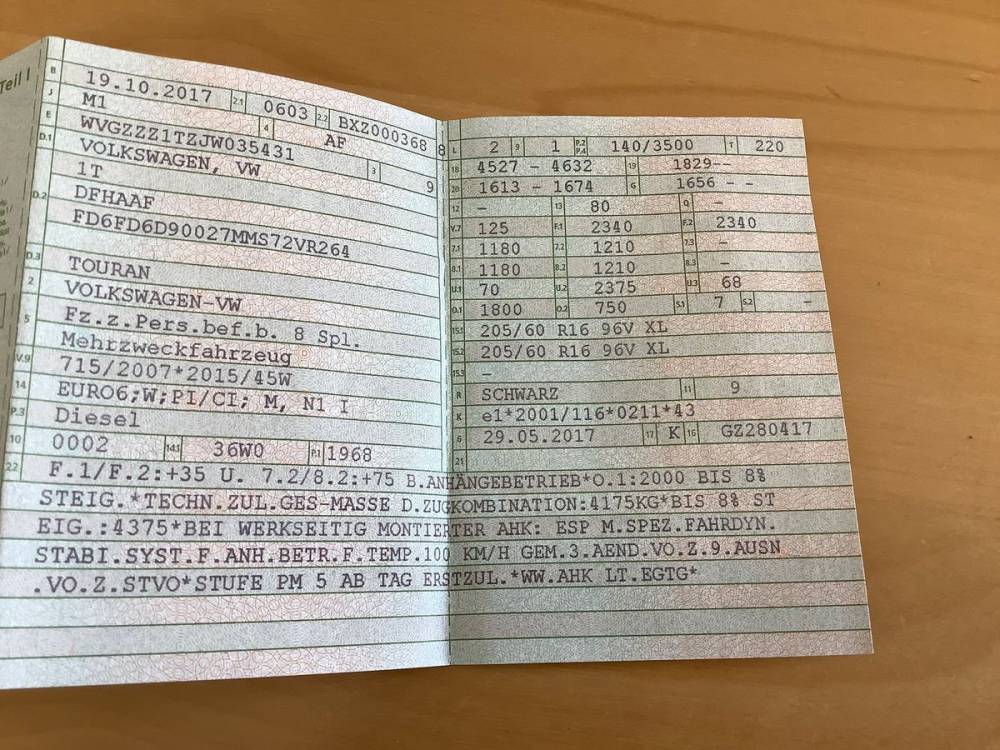 Teil I
B 19.10.2017 2.1 0603 2.2 BXZ000368 8
J M1 4 AF
E WVGZZZ1TZJW035431 3 9
D.1 VOLKSWAGEN, VW
1T
D.2 DFHAAF
FD6FD6D90027MMS72VR264
D.3 TOURAN
2 VOLKSWAGEN-VW
5 Fz.z.Pers.bef.b. 8 Spl.
Mehrzweckfahrzeug
V.9 715/2007*2015/45W
14 EURO6;W;PI/CI; M, N1 I
P.3 Diesel
10 0002 14.1 36W0 P.1 1968
L 2 9 1 P.2 P.4 140/3500 T 220
18 4527 - 4632 19 1829--
20 1613 - 1674 G 1656 - -
12 - 13 80 Q -
V.7 125 F.1 2340 F.2 2340
7.1 1180 7.2 1210 7.3 -
8.1 1180 8.2 1210 8.3 -
U.1 70 U.2 2375 U.3 68
O.1 1800 O.2 750 S.1 7 S.2 -
15.1 205/60 R16 96V XL
15.2 205/60 R16 96V XL
15.3 -
R SCHWARZ 11 9
K e1*2001/116*0211*43
6 29.05.2017 17 K 16 GZ280417
21
22 F.1/F.2:+35 U. 7.2/8.2:+75 B.ANHÄNGEBETRIEB*O.1:2000 BIS 8%
STEIG.*TECHN.ZUL.GES-MASSE D.ZUGKOMBINATION:4175KG*BIS 8% ST
EIG.:4375*BEI WERKSEITIG MONTIERTER AHK: ESP M.SPEZ.FAHRDYN.
STABI.SYST.F.ANH.BETR.F.TEMP.100 KM/H GEM.3.AEND.VO.Z.9.AUSN
.VO.Z.STVO*STUFE PM 5 AB TAG ERSTZUL.*WW.AHK LT.EGTG*